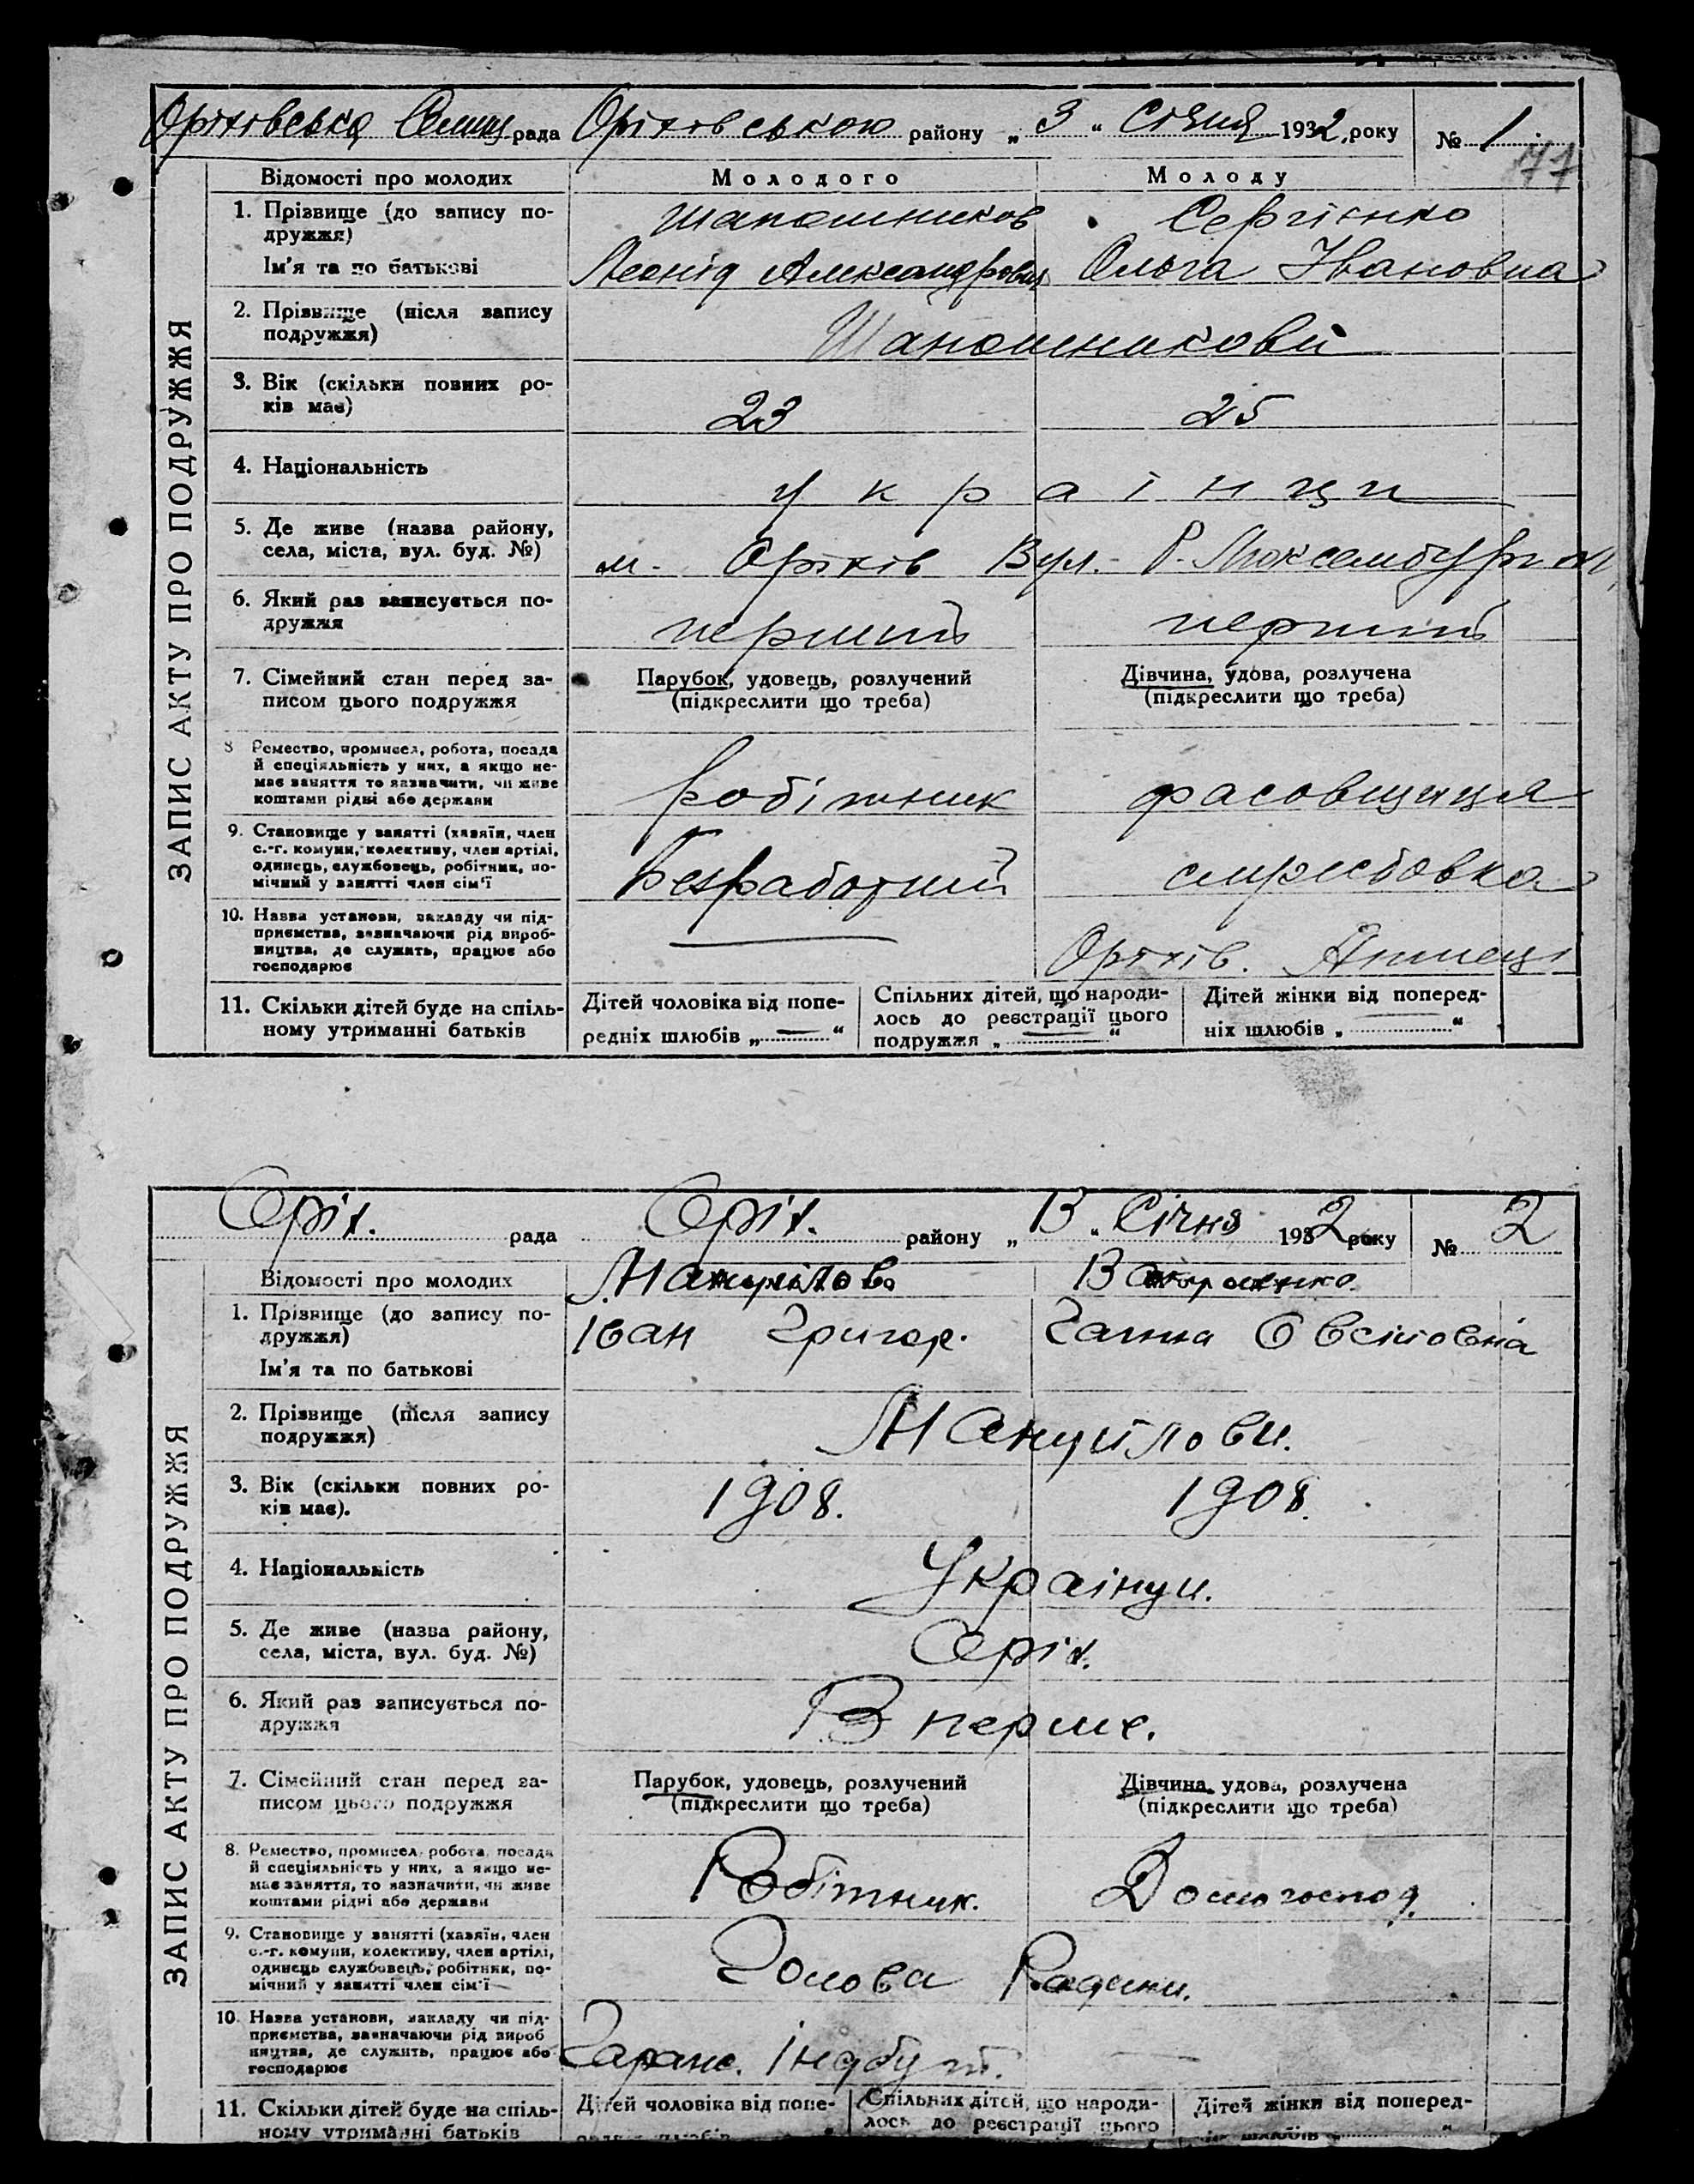 Оріхівська Селищ рада Оріхівською району „ 3 “ Січня 1932 року № 1
77
Відомості про молодих Молодого Молоду
1. Прізвище (до запису подружжя) Шапошников Сергієнко
Ім'я та по батькові Леонід Александрович Ольга Івановна
2. Прізвище (після запису подружжя) Шапошникови
3. Вік (скільки повних років має) 23 25
4. Національність українци
5. Де живе (назва району, села, міста, вул. буд. №) м. Оріхів Вул. Р. Люксембург
6. Який раз записується подружжя перший перший
7. Сімейний стан перед записом цього подружжя Парубок, удовець, розлучений (підкреслити що треба) Дівчина, удова, розлучена (підкреслити що треба)
8 Ремество, промисел, робота, посада й спеціяльність у них, а якщо немає заняття то зазначити, чи живе коштами рідні або держави робітник фасовщиця
9. Становище у занятті (хазяїн, член с.-г. комуни, колективу, член артілі, одинець, службовець, робітник, помічний у занятті член сім'ї Безработний службовка
10. Назва установи, закладу чи підприємства, зазначаючи рід виробництва, де служить, працює або господарює Оріхів. Аптеці
11. Скільки дітей буде на спільному утриманні батьків Дітей чоловіка від попередніх шлюбів „ — “ Спільних дітей, що народилось до реєстрації цього подружжя „ — “ Дітей жінки від попередніх шлюбів „ — “
ЗАПИС АКТУ ПРО ПОДРУЖЖЯ
Оріх. рада Оріх. району „ 13 “ Січня 1932 року № 2
Відомості про молодих Мануйлов
1. Прізвище (до запису подружжя) Іван Григор. Ганна Овсіїовна
Ім'я та по батькові
2. Прізвище (після запису подружжя) Мануйлови.
3. Вік (скільки повних років має). 1908. 1908.
4. Національність Українци.
5. Де живе (назва району, села, міста, вул. буд. №) Оріх.
6. Який раз записується подружжя Вперше.
7. Сімейний стан перед записом цього подружжя Парубок, удовець, розлучений (підкреслити що треба) Дівчина, удова, розлучена (підкреслити що треба)
8. Ремество, промисел, робота, посада й спеціяльність у них, а якщо немає заняття, то зазначити, чи живе коштами рідні або держави Робітник. Домогоспод.
9. Становище у занятті (хазяїн, член с.-г. комуни, колективу, член артілі, одинець службовець, робітник, помічний у занятті член сім'ї Голова Родини.
10. Назва установи, закладу чи підприємства, зазначаючи рід виробництва, де служить, працює або господарює —
11. Скільки дітей буде на спільному утриманні батьків Дітей чоловіка від попе- Спільних дітей, що народилось до реєстрації цього Дітей жінки від поперед-
ЗАПИС АКТУ ПРО ПОДРУЖЖЯ